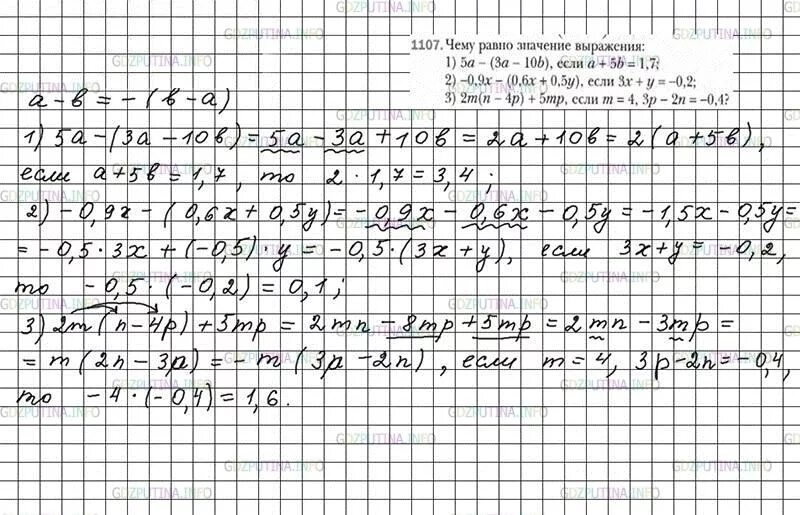 1107. Чему равно значение выражения:
1) 5a − (3a − 10b), если a + 5b = 1,7;
2) −0,9x − (0,6x + 0,5y), если 3x + y = −0,2;
3) 2m(n − 4p) + 5mp, если m = 4, 3p − 2n = −0,4?
a − в = − (в − a)
1) 5a − (3a − 10в) = 5a − 3a + 10в = 2a + 10в = 2(a + 5в),
если a + 5в = 1,7, то 2 · 1,7 = 3,4;
2) − 0,9x − (0,6x + 0,5y) = − 0,9x − 0,6x − 0,5y = −1,5x − 0,5y =
= − 0,5 · 3x + (−0,5) · y = − 0,5 · (3x + y), если 3x + y = − 0,2,
то − 0,5 · (− 0,2) = 0,1;
3) 2m(n − 4p) + 5mp = 2mn − 8mp + 5mp = 2mn − 3mp =
= m(2n − 3p) = − m(3p − 2n), если m = 4, 3p − 2n = − 0,4,
то − 4 · (− 0,4) = 1,6.
GDZPUTINA.INFO